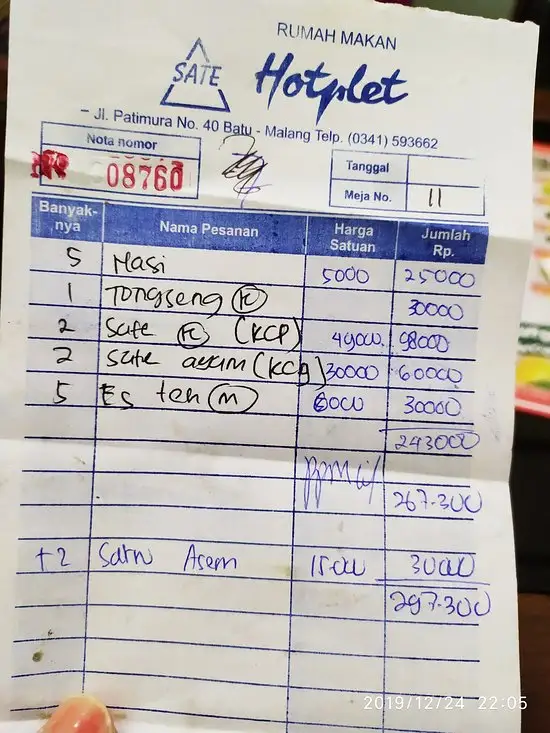 RUMAH MAKAN
SATE Hotplet
– Jl. Patimura No. 40 Batu - Malang Telp. (0341) 593662
Nota nomor
08760
Tanggal
Meja No. 11
Banyak-nya Nama Pesanan Harga Satuan Jumlah Rp.
5 Nasi 5000 25000
1 Tongseng (K) 30000
2 Sate (K) (KCP) 49000 98000
2 Sate ayam (KCP) 30000 60000
5 Es teh (M) 6000 30000
243000
267.300
+2 Satu Asem 15000 30000
297.300
2019/12/24 22:05